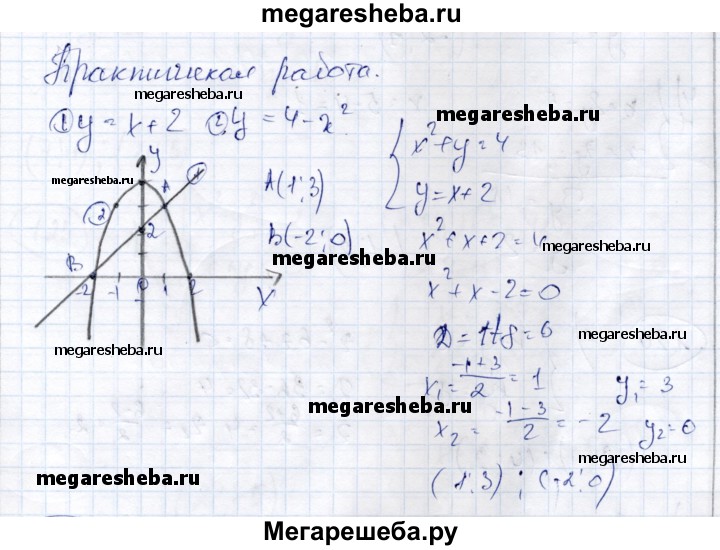 megaresheba.ru
Практическая работа.
megaresheba.ru
① y = x + 2 ② y = 4 - x²
megaresheba.ru
{ x² + y = 4
y = x + 2
y
megaresheba.ru
A
1
A(1;3)
2
2
B(-2;0)
x² + x + 2 = 4
megaresheba.ru
B
-2 -1 0 1 2 X
x² + x - 2 = 0
megaresheba.ru
D = 1+8 = 6
megaresheba.ru
x₁ = (-1+3)/2 = 1 y₁ = 3
megaresheba.ru
x₂ = (-1-3)/2 = -2 y₂ = 0
megaresheba.ru
megaresheba.ru
(1;3) ; (-2;0)
Мегарешеба.ру